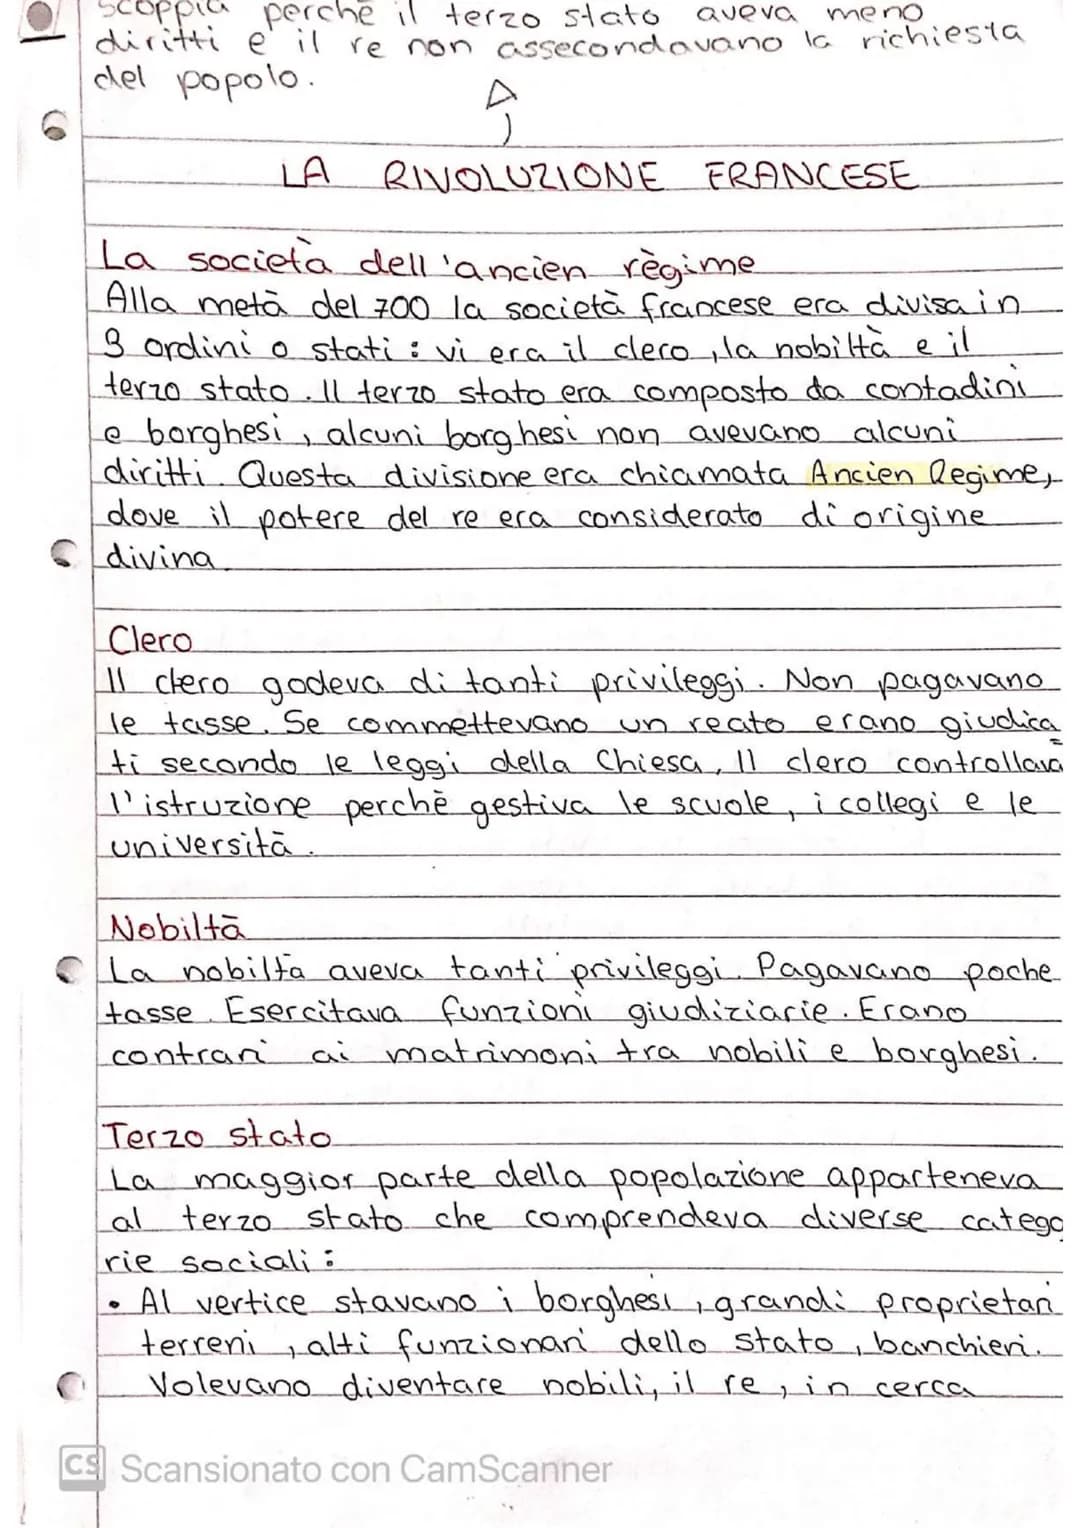 scoppia perchè il terzo stato aveva meno
diritti e il re non assecondavano la richiesta
del popolo.
LA RIVOLUZIONE FRANCESE
La società dell'ancien règime
Alla metà del 700 la società francese era divisa in
3 ordini o stati : vi era il clero, la nobiltà e il
terzo stato. Il terzo stato era composto da contadini
e borghesi, alcuni borghesi non avevano alcuni
diritti. Questa divisione era chiamata Ancien Regime,
dove il potere del re era considerato di origine
divina.
Clero
Il clero godeva di tanti privileggi. Non pagavano
le tasse. Se commettevano un reato erano giudica
ti secondo le leggi della Chiesa. Il clero controllava
l'istruzione perchè gestiva le scuole, i collegi e le
università.
Nobiltà
La nobiltà aveva tanti privileggi. Pagavano poche
tasse. Esercitava funzioni giudiziarie. Erano
contrari ai matrimoni tra nobili e borghesi.
Terzo stato
La maggior parte della popolazione apparteneva
al terzo stato che comprendeva diverse catego
rie sociali :
• Al vertice stavano i borghesi, grandi proprietari
terreni, alti funzionari dello stato, banchieri.
Volevano diventare nobili, il re, in cerca
CS Scansionato con CamScanner